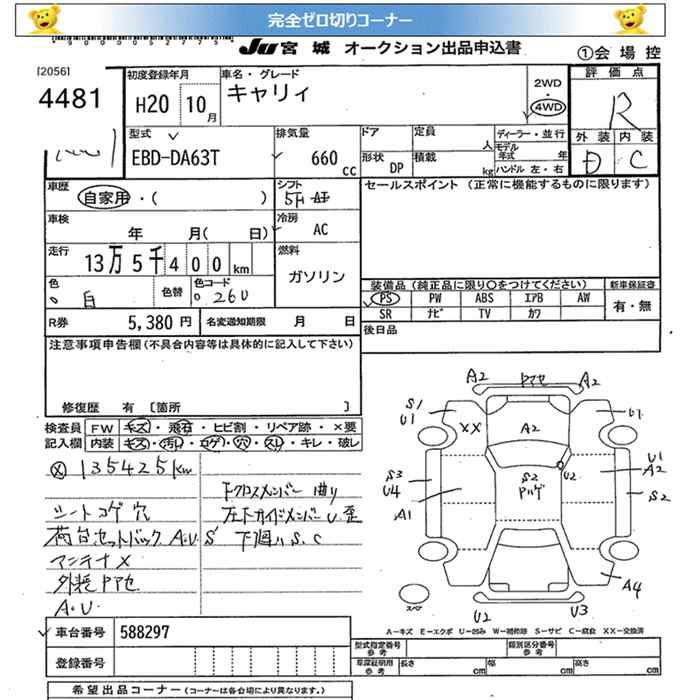 完全ゼロ切りコーナー
JU 宮城 オークション出品申込書
①会場控
[2056]
4481
初度登録年月
H20 10月
車名・グレード
キャリィ
2WD
・
4WD
評価点
R
外装 内装
D C
型式
EBD-DA63T
排気量
660 cc
ドア
定員
人
形状 DP
積載
kg
ディーラー・並行
モデル年式 年
ハンドル 左・右
車歴
自家用・( )
シフト
5F AT
セールスポイント (正常に機能するものに限ります)
車検
年 月( 日)
冷房
AC
走行
13万5千400km
燃料
ガソリン
色
白
色替
色コード
26U
装備品(純正品に限り〇をつけてください)
新車保証書
PS PW ABS エアB AW
有・無
SR ナビ TV カワ
R券 5,380円
名変通知期限 月 日
後日品
注意事項申告欄(不具合内容等は具体的に記入して下さい)
修復歴 有 [箇所 ]
検査員 FW キズ・飛石・ヒビ割・リペア跡・×要
記入欄 内装 キズ・汚れ・コゲ・穴・スレ・キレ・破レ
135425km
シートコゲ穴
荷台セットバック A.U.S
アンテナX
外装PアセA.U
下クロスメンバー曲り
左右下ガイドメンバーU.歪
下廻りS.C
A2 Pアセ A2
S1
U1
XX
A2
U1
S3
U4
A1
S2
Pハゲ
U2
U1
A2
S2
A4
スペア
U2
U3
A－キズ E－エクボ U－凹み W－補修跡 S－サビ C－腐食 XX－交換済
車台番号 588297
登録番号
型式指定番号 参考
類別区分番号 参考
車庫証明用 参考 長さ cm 幅 cm 高さ cm
希望出品コーナー(コーナーは各会場により異なります。)